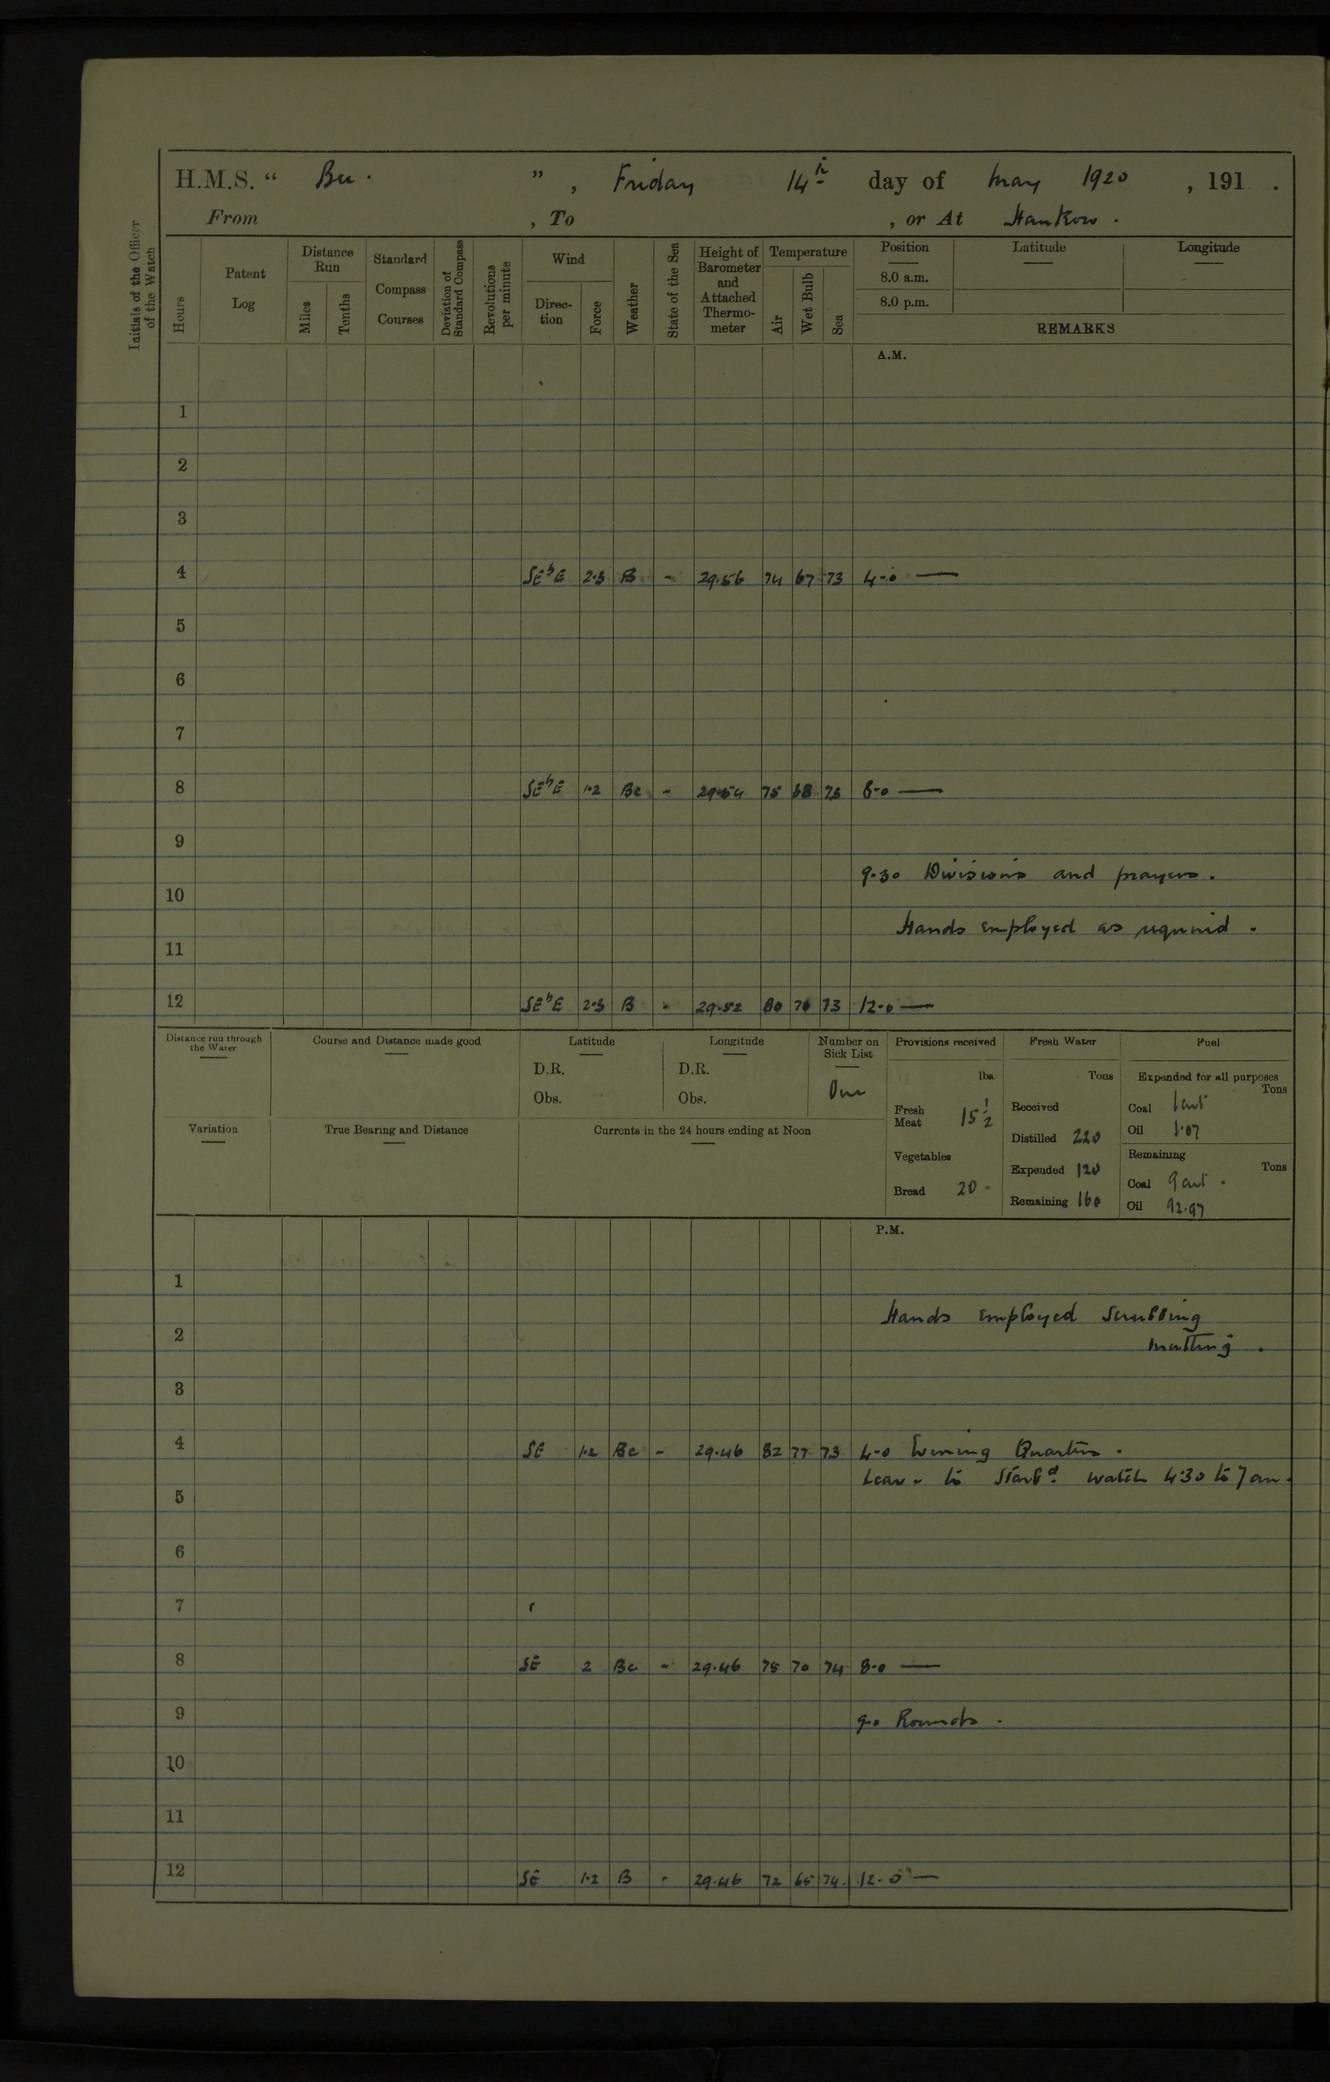 H.M.S. “ Bee. ” , Friday 14th day of May 1920 , 191 .
From , To , or At Hankow .
Initials of the Officer of the Watch
Hours
Patent Log
Distance Run
Miles
Tenths
Standard Compass Courses
Deviation of Standard Compass
Revolutions per minute
Wind
Direction
Force
Weather
State of the Sea
Height of Barometer and Attached Thermometer
Temperature
Air
Wet Bulb
Sea
Position
8.0 a.m.
8.0 p.m.
Latitude
Longitude
REMARKS
A.M.
1
2
3
4 SEbE 2·3 B - 29.56 74 67 73 4-0 —
5
6
7
8 SEbE 1·2 Bc - 29.54 75 68 73 8-0 —
9
9-30 Divisions and prayers.
10
Hands employed as required.
11
12 SEbE 2·3 B - 29.52 80 70 73 12-0 —
Distance run through the Water
Course and Distance made good
Latitude
D.R.
Obs.
Longitude
D.R.
Obs.
Number on Sick List
One
Provisions received
lbs.
Fresh Meat 15 1/2
Vegetables
Bread 20 -
Fresh Water
Tons
Received
Distilled 220
Expended 120
Remaining 160
Fuel
Expended for all purposes
Tons
Coal 1 cwt
Oil 1.07
Remaining
Tons
Coal 9 cwt .
Oil 92.97
Variation
True Bearing and Distance
Currents in the 24 hours ending at Noon
P.M.
1
Hands employed scrubbing
2
matting .
3
4 SE 1·2 Bc - 29.46 82 77 73 4-0 Evening Quarters .
Leave to Starbd. watch 4.30 to 7 am.
5
6
7
8 SE 2 Bc - 29.46 75 70 74 8-0 —
9 9-0 Rounds .
10
11
12 SE 1·2 B - 29.46 72 65 74 12-0 —